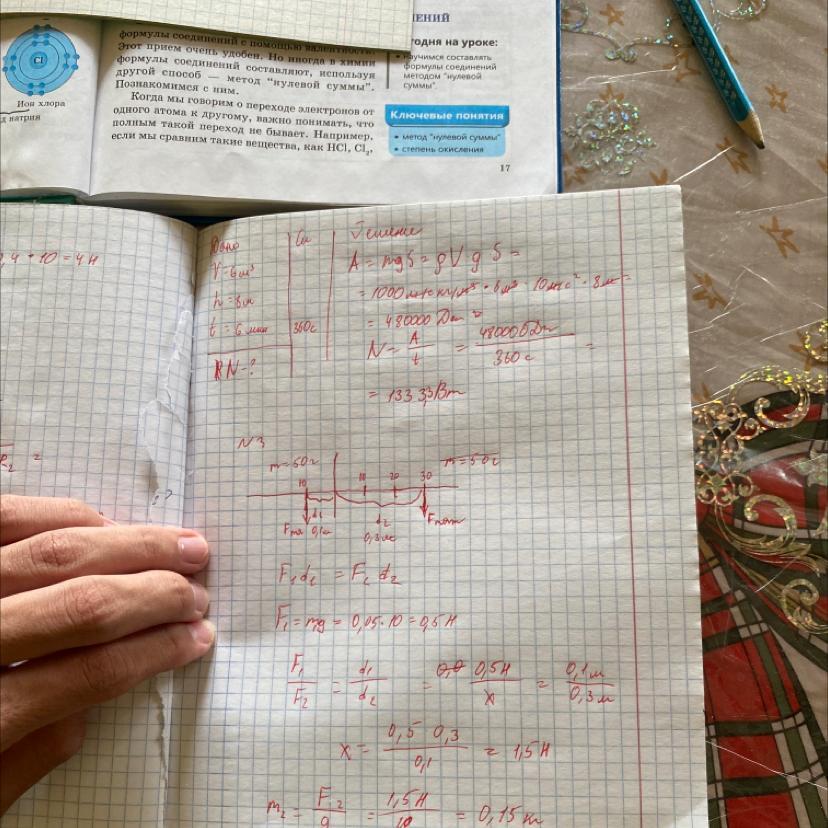 формулы соединений с помощью валентности.
Этот прием очень удобен. Но иногда в химии
формулы соединений составляют, используя
другой способ — метод "нулевой суммы".
Познакомимся с ним.
Когда мы говорим о переходе электронов от
одного атома к другому, важно понимать, что
полным такой переход не бывает. Например,
если мы сравним такие вещества, как HCl, Cl₂,
Cl
Ион хлора
натрия
ЕНИЙ
годня на уроке:
научимся составлять
формулы соединений
методом "нулевой
суммы".
Ключевые понятия
• метод "нулевой суммы"
• степень окисления
17
,4 + 10 = 4 Н
Дано
V = 6 м³
h = 8 м
t = 6 мин
N - ?
Си
360 с
Решение
A = mgS = ρVgS =
= 1000 кг/м³ · 6 м³ · 10 м/с² · 8 м =
= 480000 Дж
N = A/t = 480000 Дж / 360 с =
= 1333,3 Вт
N3
m = 50 г
m = 50 г
10 10 20 30
d₁
0,1 м
d₂
0,3 м
F₁d₁ = F₂ d₂
F₁ = mg = 0,05 · 10 = 0,5 Н
F₁/F₂ = d₁/d₂ = 0,5 Н / x = 0,1 м / 0,3 м
x = 0,5 0,3 / 0,1 = 1,5 Н
m₂ = F₂/g = 1,5 Н / 10 = 0,15 кг